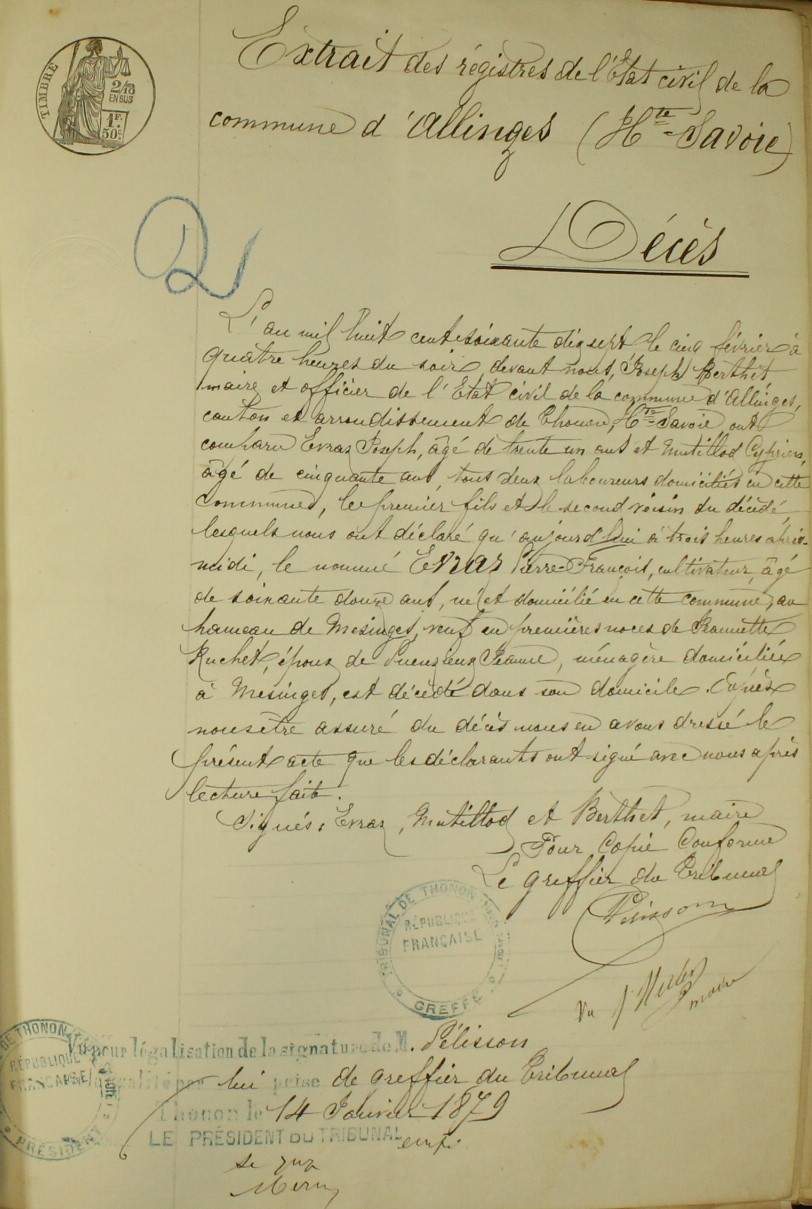 TIMBRE
2/10
EN SUS
1F.
50c
Extrait des régistres de l'Etat civil de la
commune d'Allinges (Hte-Savoie)
Décès
L'an mil huit cent soixante dix sept le cinq février à
quatre heures du soir, devant nous, Joseph Berthet
maire et officier de l'Etat civil de la commune d'Allinges,
canton et arrondissement de Thonon, Hte-Savoie, ont
comparu Evraz Joseph, âgé de trente un ans et Mutillod Cyprien,
âgé de cinquante ans, tous deux laboureurs domiciliés en cette
commune, le premier fils et le second voisin du décédé
lesquels nous ont déclaré qu'aujourd'hui à trois heures après-
midi, le nommé Evraz Pierre-François, cultivateur, âgé
de soixante douze ans, né et domicilié en cette commune, au
hameau de Mesinges, veuf en premières noces de Jeannette
Ruchet, époux de Jeanne, ménagère domiciliée
à Mesinges, est décédé dans son domicile. Après
nous être assuré du décès nous en avons dressé le
présent acte que les déclarants ont signé avec nous après
lecture faite.
Signés: Evraz, Mutillod et Berthet, maire
Pour Copie Conforme
Le greffier du Tribunal
Pélisson
TRIBUNAL DE THONON
RÉPUBLIQUE
FRANÇAISE
GREFFE
Vu
Vu pour légalisation de la signature de M. Pélisson
lui prise de greffier du Tribunal
Thonon le 14 Janvier 1879
LE PRÉSIDENT DU TRIBUNAL
DE THONON
RÉPUBLIQUE
FRANÇAISE
PRÉSIDENT